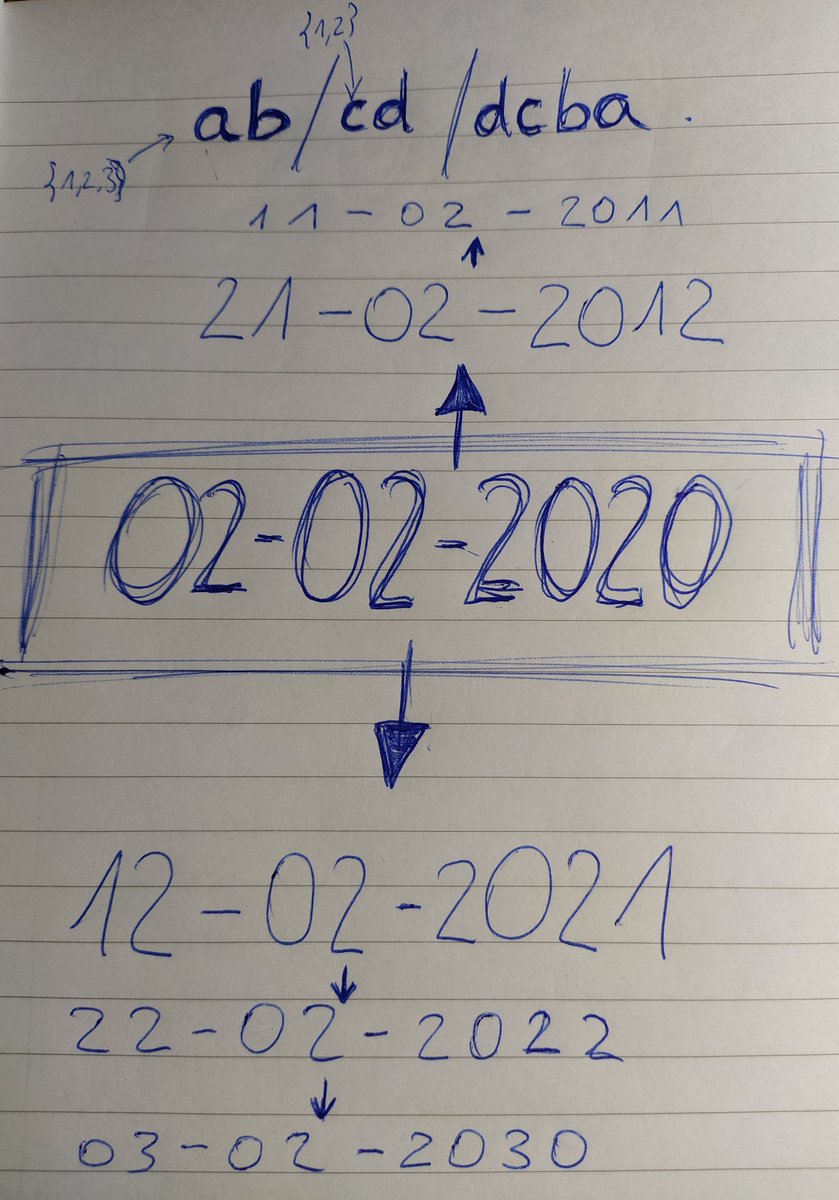 {1,2}
ab/cd/dcba.
{1,2,3}
11-02-2011
21-02-2012
02-02-2020
12-02-2021
22-02-2022
03-02-2030